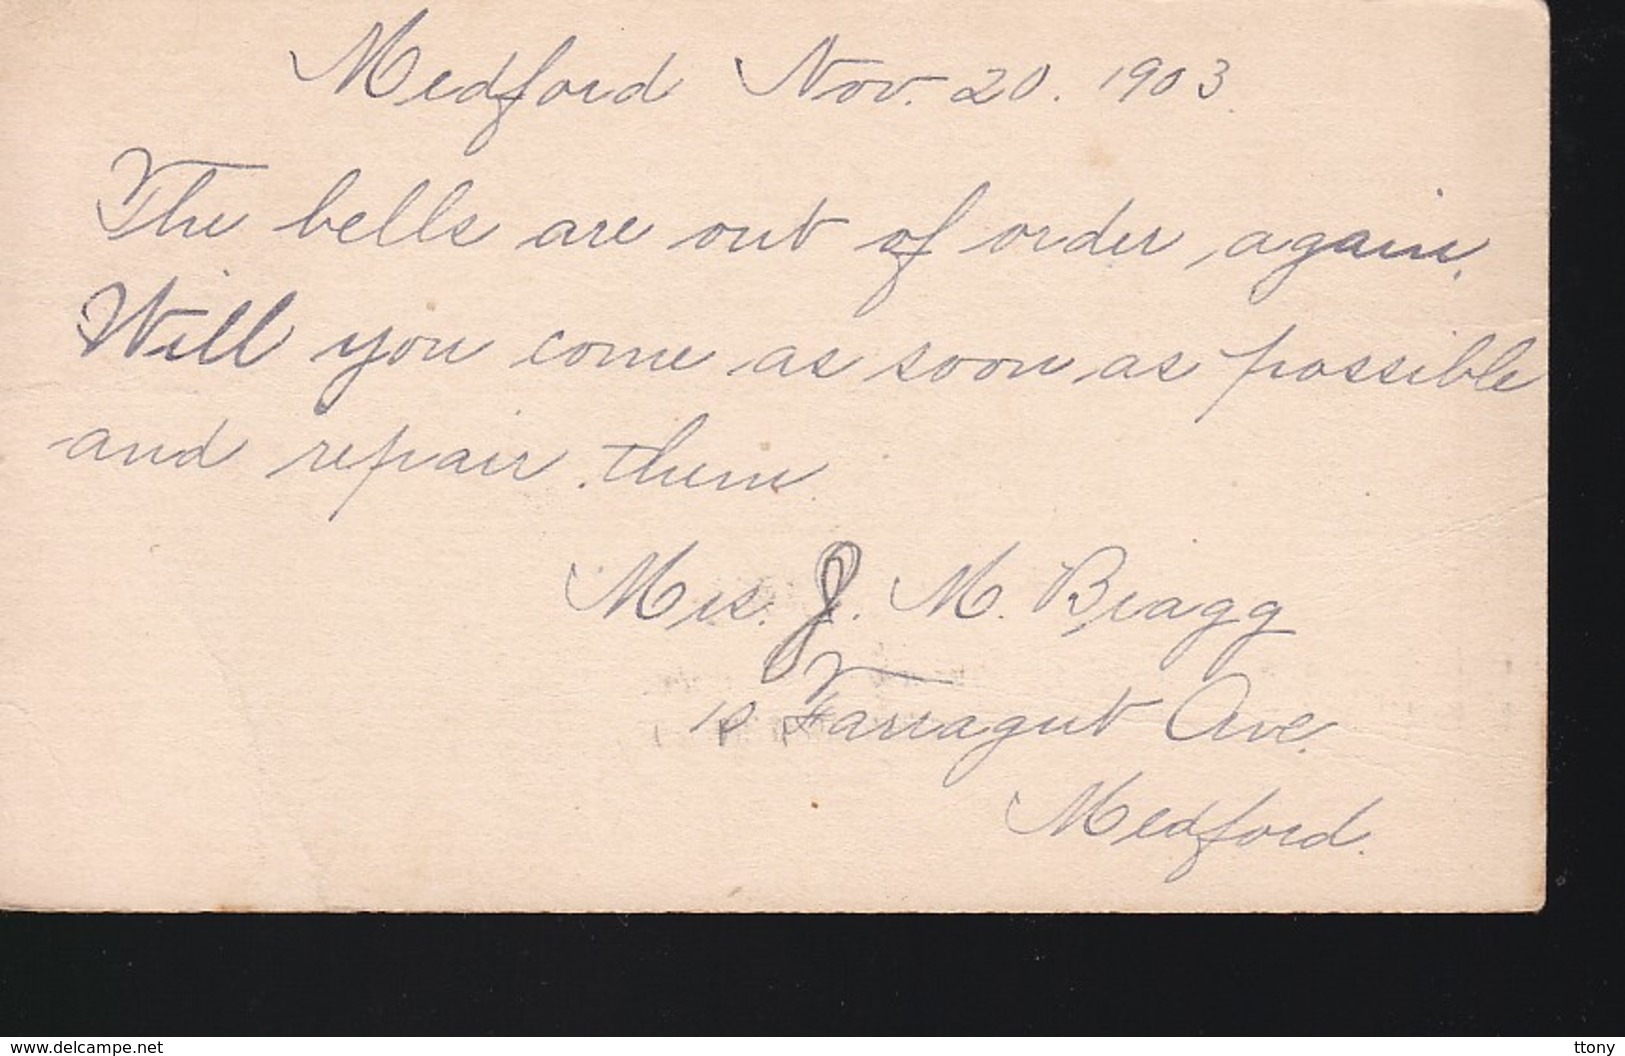 Medford Nov. 20. 1903.
The bells are out of order again.
Will you come as soon as possible
and repair them.
Mrs. J. M. Bragg
Farragut Ave.
Medford.
www.delcampe.net
ttony